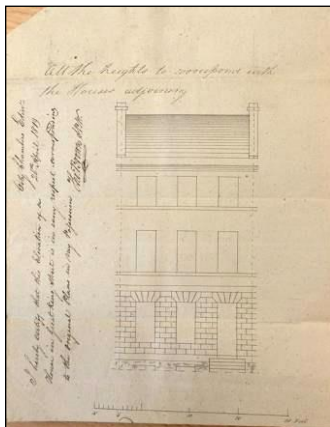 All the heights to correspond with
the Houses adjoining
City Chambers Edinr
26th April 1819
I hereby certify that this Elevation of a
House in Great King Street is in every respect corresponding
to the original Plan in my Possession
Feet